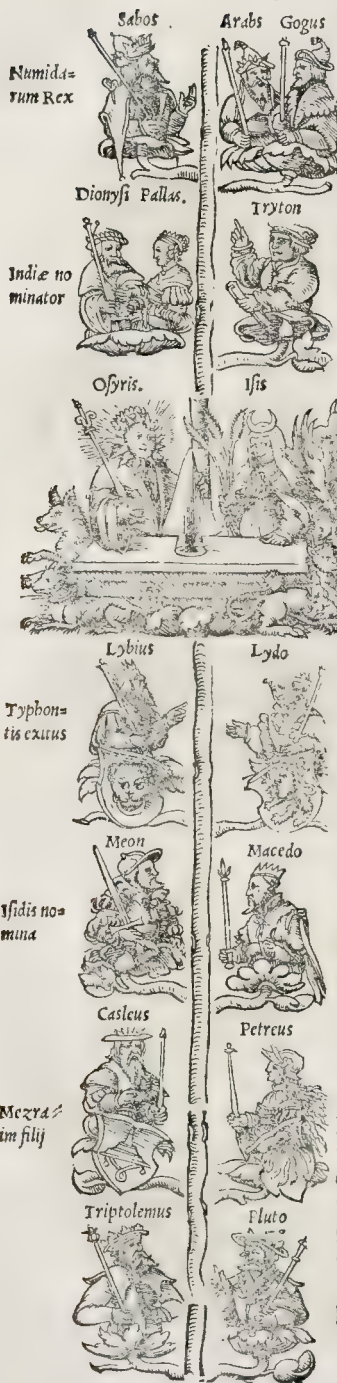 Sabos
Arabs Gogus
Numida=
rum Rex
Dionysi Pallas.
Tryton
Indiæ no
minator
Osyris.
Isis
Lybius
Lydo
Typhon=
tis exitus
Meon
Macedo
Isidis no=
mina
Casleus
Petreus
Mezra=
im filij
Triptolemus
Pluto